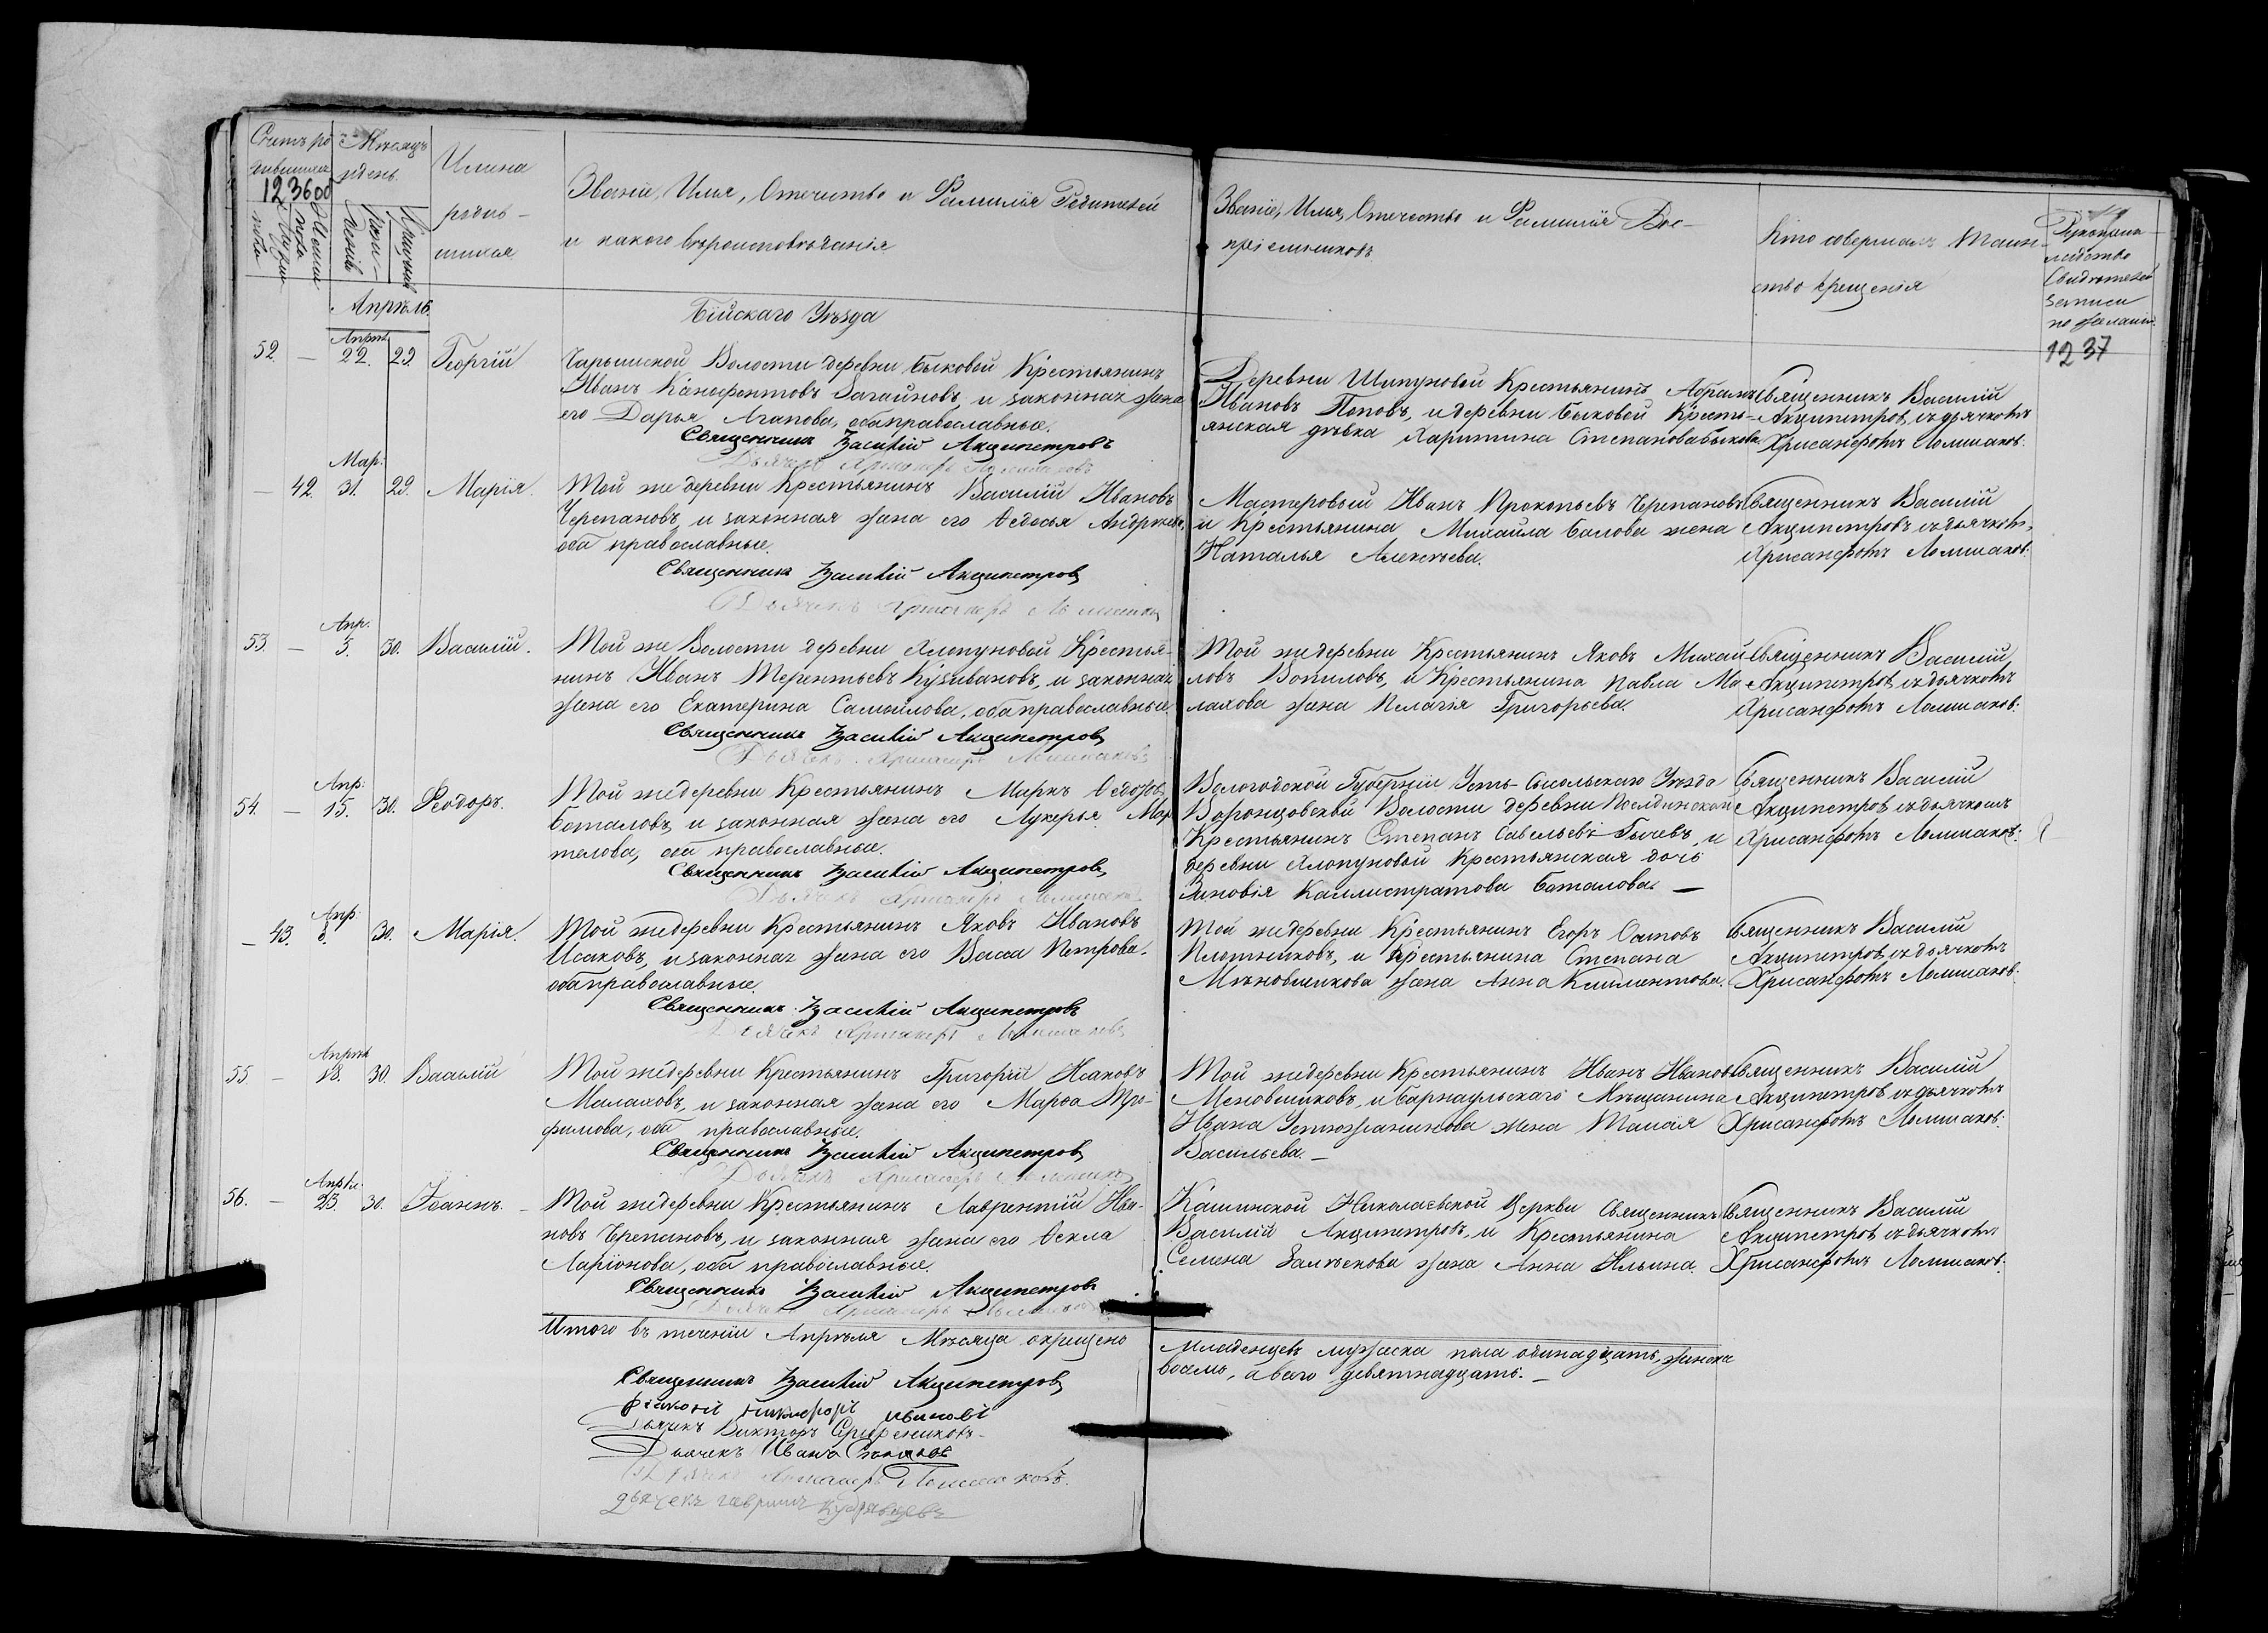 Счетъ ро
дившихся
123600
Мужеска
пола
Женска
пола
Мѣсяцъ
и день
рожденія
крещенія
Имена
родив-
шихся
Званіе, Имя, Отчество и Фамилія Родителей
и какого вѣроисповѣданія
Званіе, Имя, Отчество и Фамилія Вос-
пріемниковъ
Кто совершалъ таин-
ство крещенія
Рукоприкла-
дство
свидѣтелей
записи
по желанію.
1237
Апрѣль
Бійскаго Уѣзда
52 — Апрѣл. 22. 29. Георгій
Чарышской Волости деревни Быковой Крестьянинъ
Иванъ Ксенофонтовъ Загайновъ, и законная жена
его Дарья Агапова, оба православные.
Священникъ Василій Акципетровъ
Дьячекъ Хрисанфъ Ломшаковъ
Деревни Шипуновой Крестьянинъ Абрамъ
Ивановъ Поповъ, и деревни Быковой Кресть-
янская дѣвка Харитина Степанова Быкова.
Священникъ Василій
Акципетровъ съ дьячкомъ
Хрисанфомъ Ломшаков:
— 42. Мар. 31. 29. Марія.
Той же деревни Крестьянинъ Василій Ивановъ
Черепановъ, и законная жена его Ѳедосья Андреева,
оба православные.
Священникъ Василій Акципетровъ
Дьячекъ Хрисанфъ Ломшаковъ
Мастеровый Иванъ Прокопьевъ Черепановъ
и Крестьянина Михаила Балова жена
Наталья Алексѣева.
Священникъ Василій
Акципетровъ съ дьячкомъ
Хрисанфомъ Ломшаков:
53. — Апр. 5. 30. Василій.
Той же Волости деревни Хлопуновой Крестья-
нинъ Иванъ Терентьевъ Кузивановъ, и законная
жена его Екатерина Самойлова, оба православные.
Священникъ Василій Акципетровъ
Дьячекъ Хрисанфъ Ломшаковъ
Той же деревни Крестьянинъ Яковъ Михай
ловъ Вопиловъ, и Крестьянина Павла Ма-
лахова жена Пелагія Григорьева.
Священникъ Василій
Акципетровъ съ дьячкомъ
Хрисанфомъ Ломшаков:
54. — Апр: 15. 30. Ѳеодоръ.
Той же деревни Крестьянинъ Маркъ Ѳедотовъ
Боталовъ, и законная жена его Лукерья Мар
телова, оба православные.
Священникъ Василій Акципетровъ
Дьячекъ Хрисанфъ Ломшаковъ
Вологодской Губерніи Усть-Сысольскаго Уѣзда
Воронцовской Волости деревни
Крестьянинъ Степанъ Савельевъ Гычевъ, и
деревни Хлопуновой Крестьянская дочь
Зиновія Каллистратова Боталова. —
Священникъ Василій
Акципетровъ съ дьячкомъ
Хрисанфомъ Ломшаков:
— 43. Апр: 8. 30. Марія.
Той же деревни Крестьянинъ Яковъ Ивановъ
Исаковъ, и законная жена его Васса Петрова.
оба православные.
Священникъ Василій Акципетровъ
Дьячекъ Хрисанфъ Ломшаковъ
Той же деревни Крестьянинъ Егоръ Осиповъ
Плотниковъ, и Крестьянина Степана
Мѣновщикова жена Анна Климентова.
Священникъ Василій
Акципетровъ съ дьячкомъ
Хрисанфомъ Ломшаков:
55. — Апрѣл. 18. 30. Василій
Той же деревни Крестьянинъ Григорій Исаковъ
Малаховъ, и законная жена его Марѳа Тро-
фимова, оба православные.
Священникъ Василій Акципетровъ
Дьячекъ Хрисанфъ Ломшаковъ
Той же деревни Крестьянинъ Иванъ Ивановъ
Меновщиковъ, и Барнаульскаго Мѣщанина
Ивана Устюжанинова жена Таисія
Васильева. —
Священникъ Василій
Акципетровъ съ дьячкомъ
Хрисанфомъ Ломшаков:
56. — Апрѣл: 23. 30. Іоаннъ. —
Той же деревни Крестьянинъ Лаврентій Ива-
новъ Черепановъ, и законная жена его Ѳекла
Ларіонова, оба православные.
Священникъ Василій Акципетровъ
Дьячекъ Хрисанфъ Ломшаковъ
Кашинской Николаевской Церкви Священникъ
Василій Акципетровъ, и Крестьянина
Семина жена Анна Ильина.
Священникъ Василій
Акципетровъ съ дьячкомъ
Хрисанфомъ Ломшаков:
Итого въ теченіи Апрѣля Мѣсяца окрещено
младенцевъ мужеска пола одинадцать, женска
восмь, а всего девятнадцать. —
Священникъ Василій Акципетровъ
Діаконъ Никифоръ Ивановъ
Дьячекъ Викторъ
Дьячекъ Иванъ
Дьячекъ Хрисанфъ Ломшаковъ.
дьячекъ Гавріилъ Кудрявцевъ